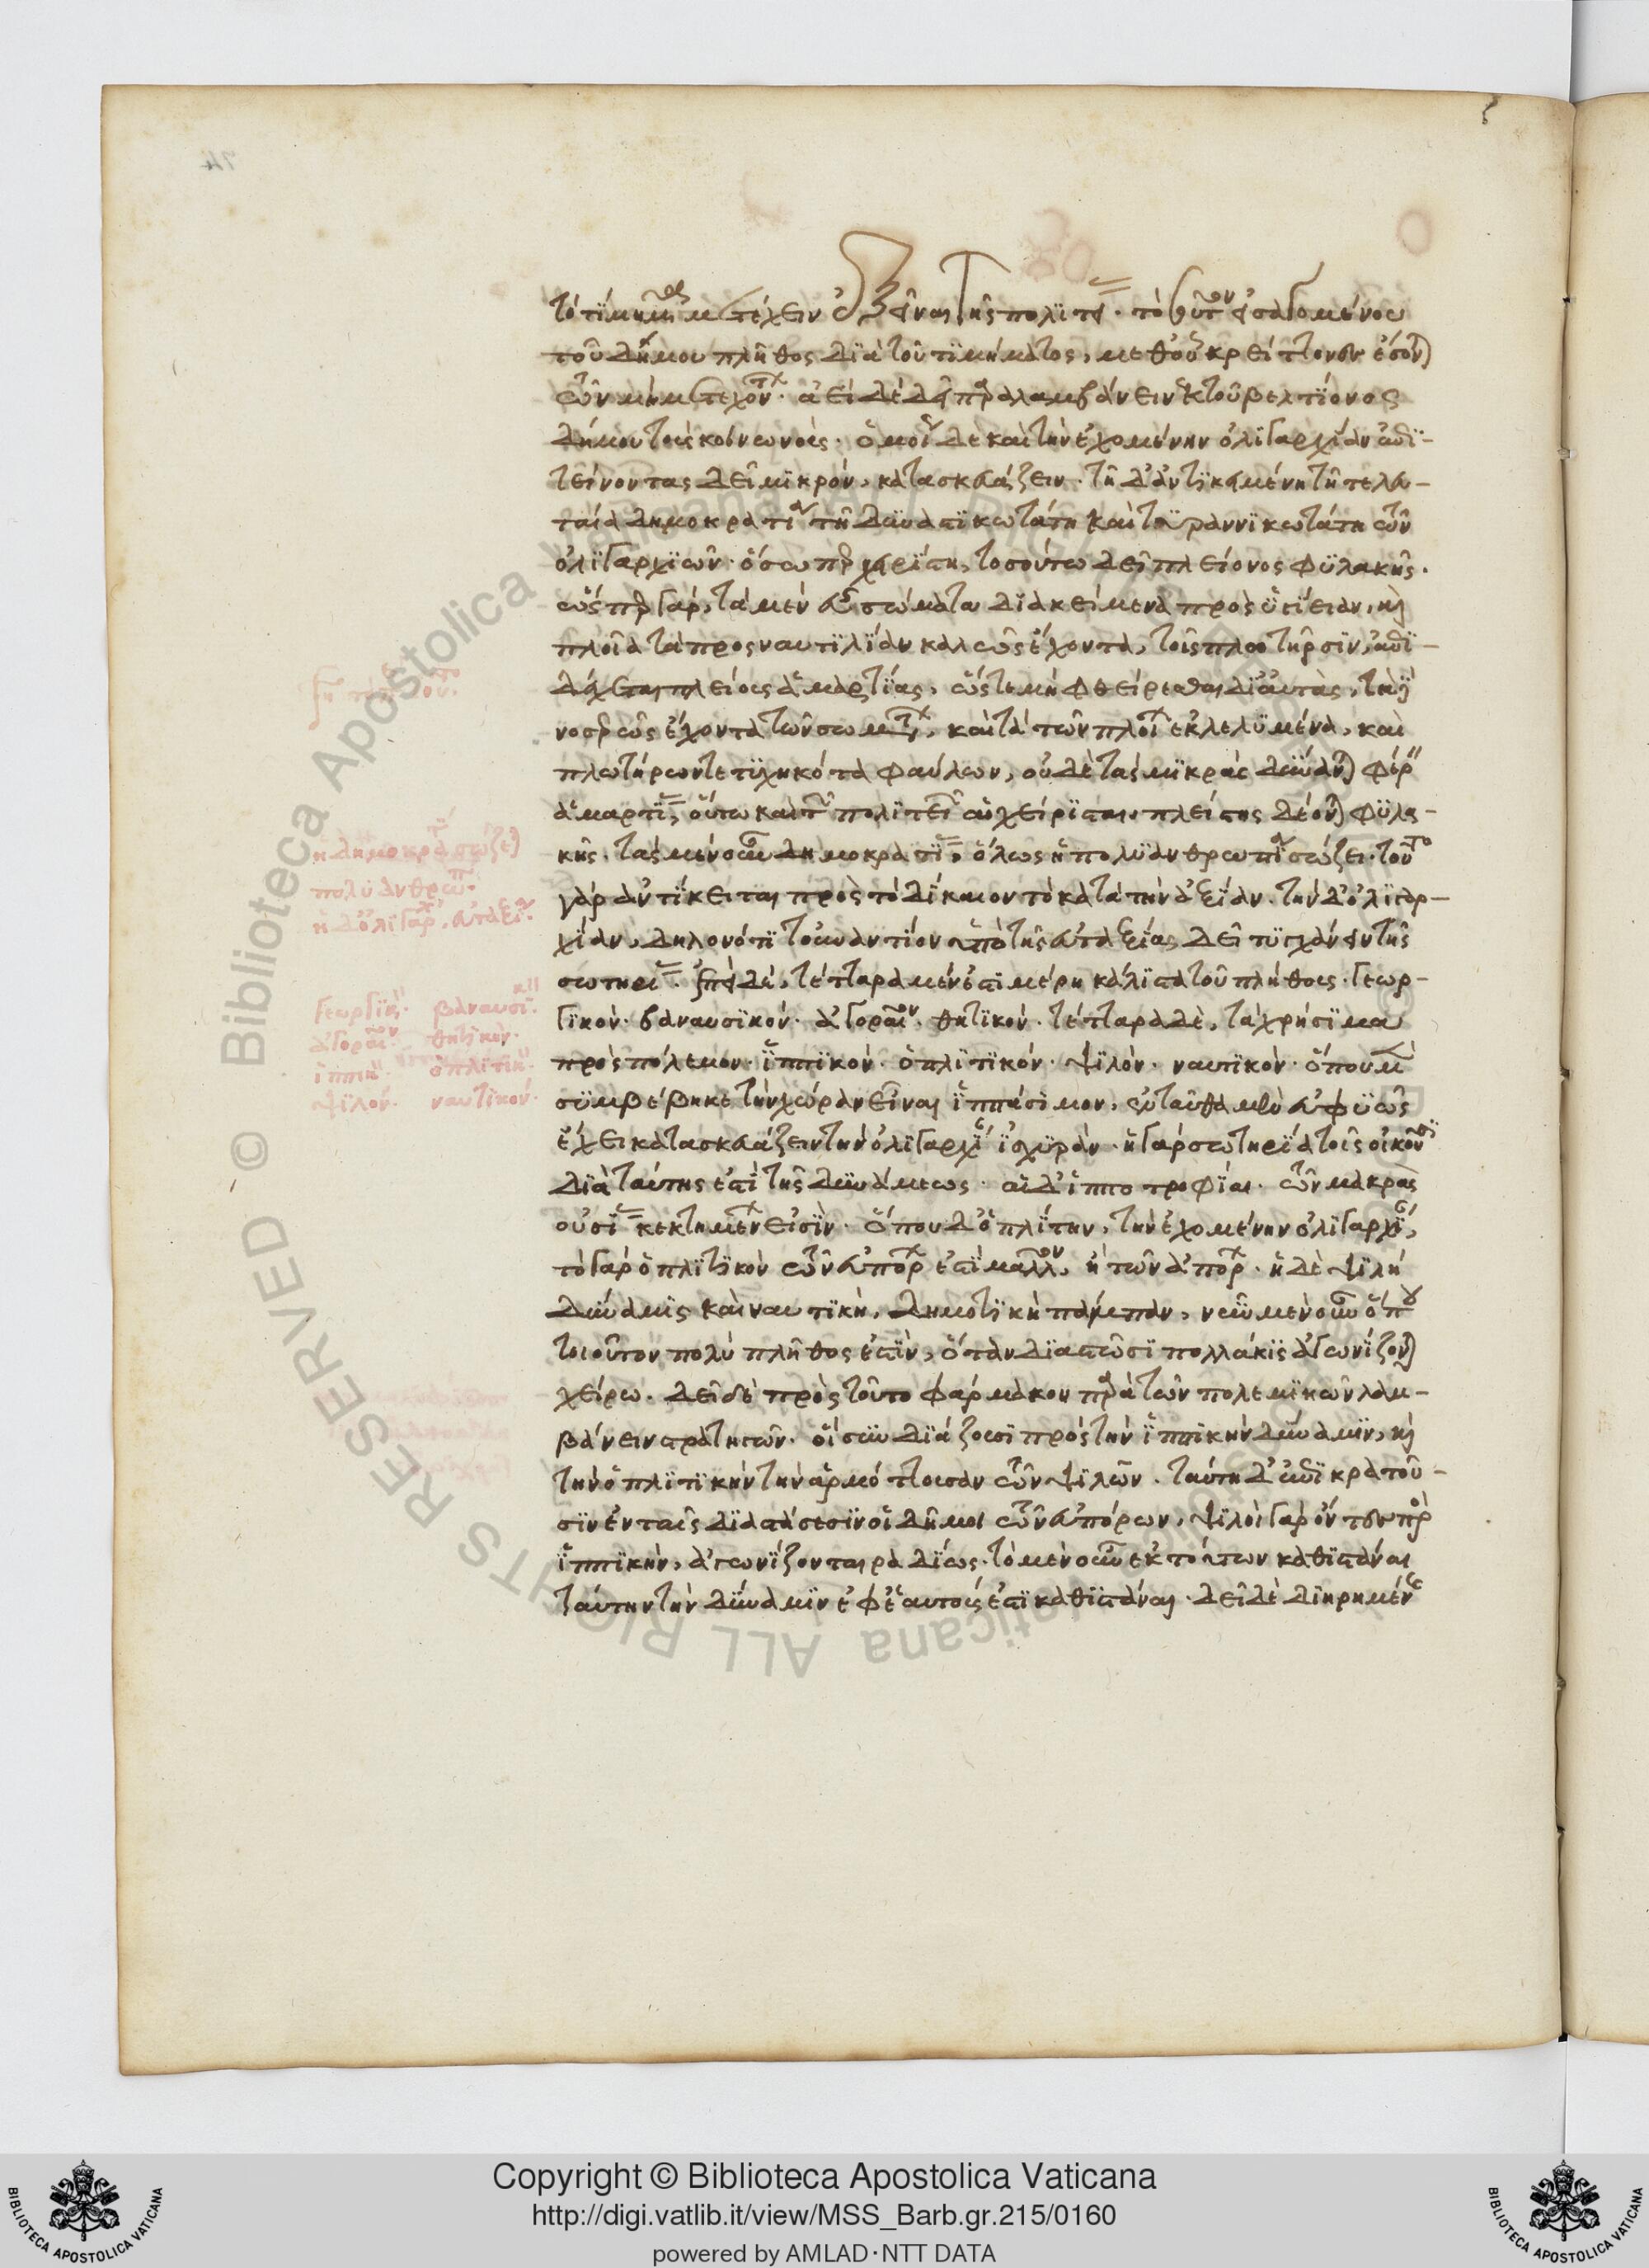 τὸ τίμημα μετέχειν ἐξεῖναι τῆς πολιτείας· τοσοῦτον εἰσαγομένου
τοῦ δήμου πλῆθος διὰ τοῦ τιμήματος, μεθ' οὗ κρείττονες ἔσονται
τῶν μὴ μετεχόντων· ἀεὶ δὲ δεῖ παραλαμβάνειν ἐκ τοῦ βελτίονος
δήμου τοὺς κοινωνούς· ὁμοίως δὲ καὶ τὴν ἐχομένην ὀλιγαρχίαν ἐπι-
τείνοντας δεῖ μικρόν, κατασκευάζειν. τῇ δ' ἀντικειμένη τῇ τελευ-
ταία δημοκρατία τῇ δυναστικωτάτη καὶ τυραννικωτάτη τῶν
ὀλιγαρχιῶν· ὅσω περ χειρίστη, τοσούτω δεῖ πλείονος φυλακῆς.
ὥσπερ γάρ, τὰ μὲν σώματα εὖ διακείμενα πρὸς ὑγίειαν, καὶ
πλοῖα τὰ πρὸς ναυτιλίαν καλῶς ἔχοντα, τοῖς πλωτῆρσιν, ἐπι-
δέχεται πλείους ἁμαρτίας, ὥστε μὴ φθείρεσθαι δι' αὐτὰς, τὰ δὲ
νοσερῶς ἔχοντα τῶν σωμάτων, καὶ τὰ τῶν πλοίων ἐκλελυμένα, καὶ
πλωτήρων τετυχηκότα φαύλων, οὐδὲ τὰς μικρὰς δύνανται φέρειν
ἁμαρτίας, οὕτω καὶ τῶν πολιτειῶν αἱ χείρισται, πλείστης δέονται φυλα-
κῆς. τὰς μὲν οὖν δημοκρατίας ὅλως ἡ πολυανθρωπία σώζει· τοῦτο
γὰρ ἀντίκειται πρὸς τὸ δίκαιον τὸ κατὰ τὴν ἀξίαν. τὴν δ' ὀλιγαρ-
χίαν, δηλονότι τοὐναντίον ὑπὸ τῆς εὐταξίας δεῖ τυγχάνειν τῆς
σωτηρίας. ἐπεὶ δὲ, τέτταρα μέν ἐστι μέρη μάλιστα τοῦ πλήθους· γεωρ-
γικόν· βαναυσικόν· ἀγοραῖον· θητικόν· τέτταρα δὲ, τὰ χρήσιμα
πρὸς πόλεμον· ἱππικόν· ὁπλιτικόν· ψιλόν· ναυτικόν· ὅπου μὲν
συμβέβηκε τὴν χώραν εἶναι ἱππάσιμον, ἐνταῦθα μὲν εὐφυῶς
ἔχει κατασκευάζειν τὴν ὀλιγαρχίαν ἰσχυράν· ἡ γὰρ σωτηρία τοῖς οἰκοῦσι
διὰ ταύτης ἐστὶ τῆς δυνάμεως· αἱ δ' ἱπποτροφίαι· τῶν μακρὰς
οὐσίας κεκτημένων εἰσὶν· ὅπου δ' ὁπλίτην, τὴν ἐχομένην ὀλιγαρχίαν,
τὸ γὰρ ὁπλιτικὸν τῶν εὐπόρων ἐστὶ μᾶλλον, ἢ τῶν ἀπόρων· ἡ δὲ ψιλὴ
δύναμις καὶ ναυτικὴ, δημοτικὴ πάμπαν, νῦν μὲν οὖν ὅπου
τοιοῦτον πολὺ πλῆθός ἐστιν, ὅταν διαστῶσι πολλάκις ἀγωνίζονται
χείρω. δεῖ δὲ πρὸς τοῦτο φάρμακον παρὰ τῶν πολεμικῶν λαμ-
βάνειν στρατηγῶν· οἳ συνδυάζουσι πρὸς τὴν ἱππικὴν δύναμιν, καὶ
τὴν ὁπλιτικὴν τὴν ἁρμόττουσαν τῶν ψιλῶν. ταύτη δ' ἐπικρατοῦ-
σιν ἐν ταῖς διαστάσεσιν οἱ δῆμοι τῶν εὐπόρων, ψιλοὶ γὰρ ὄντες πρὸς
ἱππικὴν, ἀγωνίζονται ραδίως. τὸ μὲν οὖν ἐκ τούτων καθιστάναι
ταύτην τὴν δύναμιν ἐφ' ἑαυτούς ἐστι καθιστάναι· δεῖ δὲ διηρημένης
ἡ δημοκρατία σώζεται
πολυανθρωπ.
ἡ δ' ὀλιγαρ. εὐταξία.
γεωργικόν· βαναυσικόν.
ἀγοραῖον· θητικόν·
ἱππικόν· ὁπλιτικόν·
ψιλόν· ναυτικόν·
© Biblioteca Apostolica Vaticana ALL RIGHTS RESERVED
Copyright © Biblioteca Apostolica Vaticana
http://digi.vatlib.it/view/MSS_Barb.gr.215/0160
powered by AMLAD·NTT DATA
BIBLIOTECA APOSTOLICA VATICANA
BIBLIOTECA APOSTOLICA VATICANA